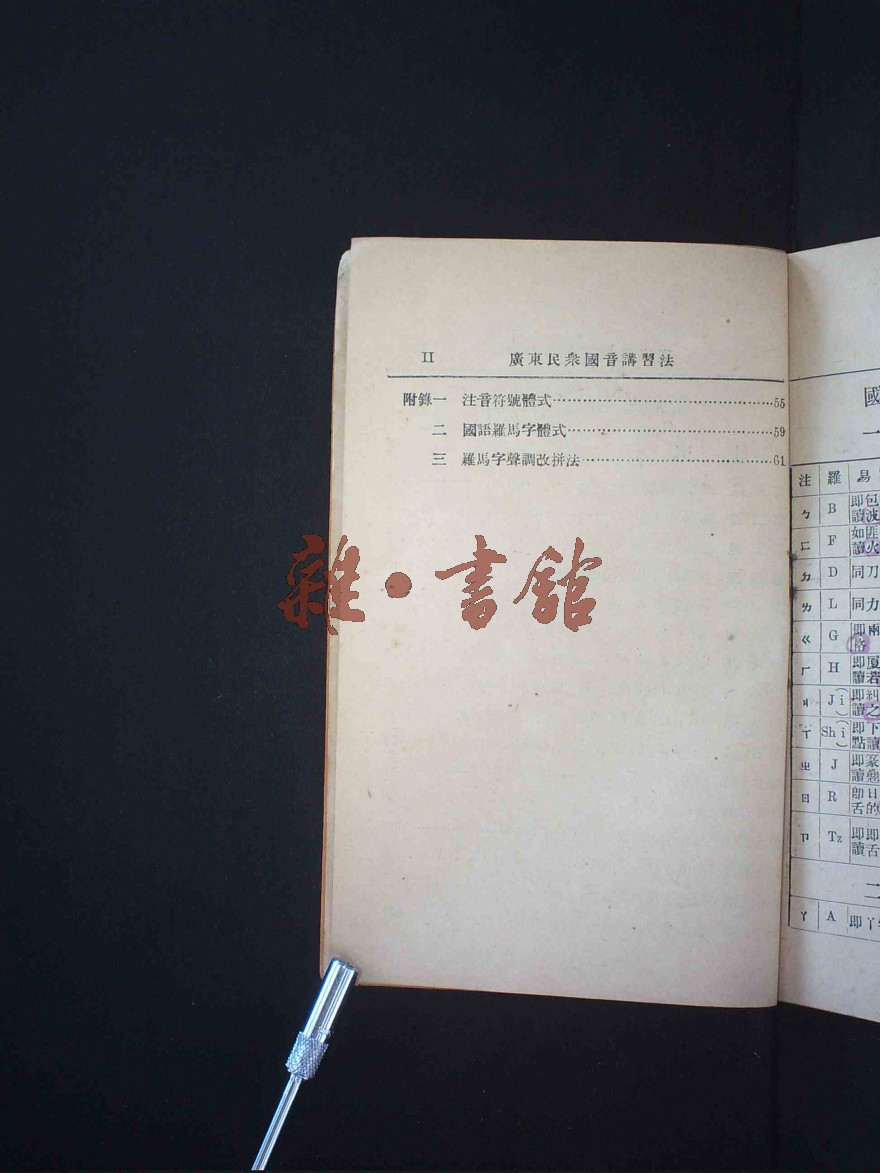 II 廣東民衆國音講習法
附錄一 注音符號體式……55
二 國語羅馬字體式……59
三 羅馬字聲調改拼法……61
雜·書館
國
一
注 羅 易
ㄅ B 即包
讀波
ㄈ F 如匪
讀火
ㄉ D 同刀
ㄌ L 同力
ㄍ G 即兩
格
ㄏ H 即厦
讀若
ㄐ J(i) 即糾
讀之
ㄒ Sh(i) 即下
點讀
ㄓ J 即篆
讀
ㄖ R 即日
舌的
ㄗ Tz 即即
讀舌
二
ㄚ A 即丫